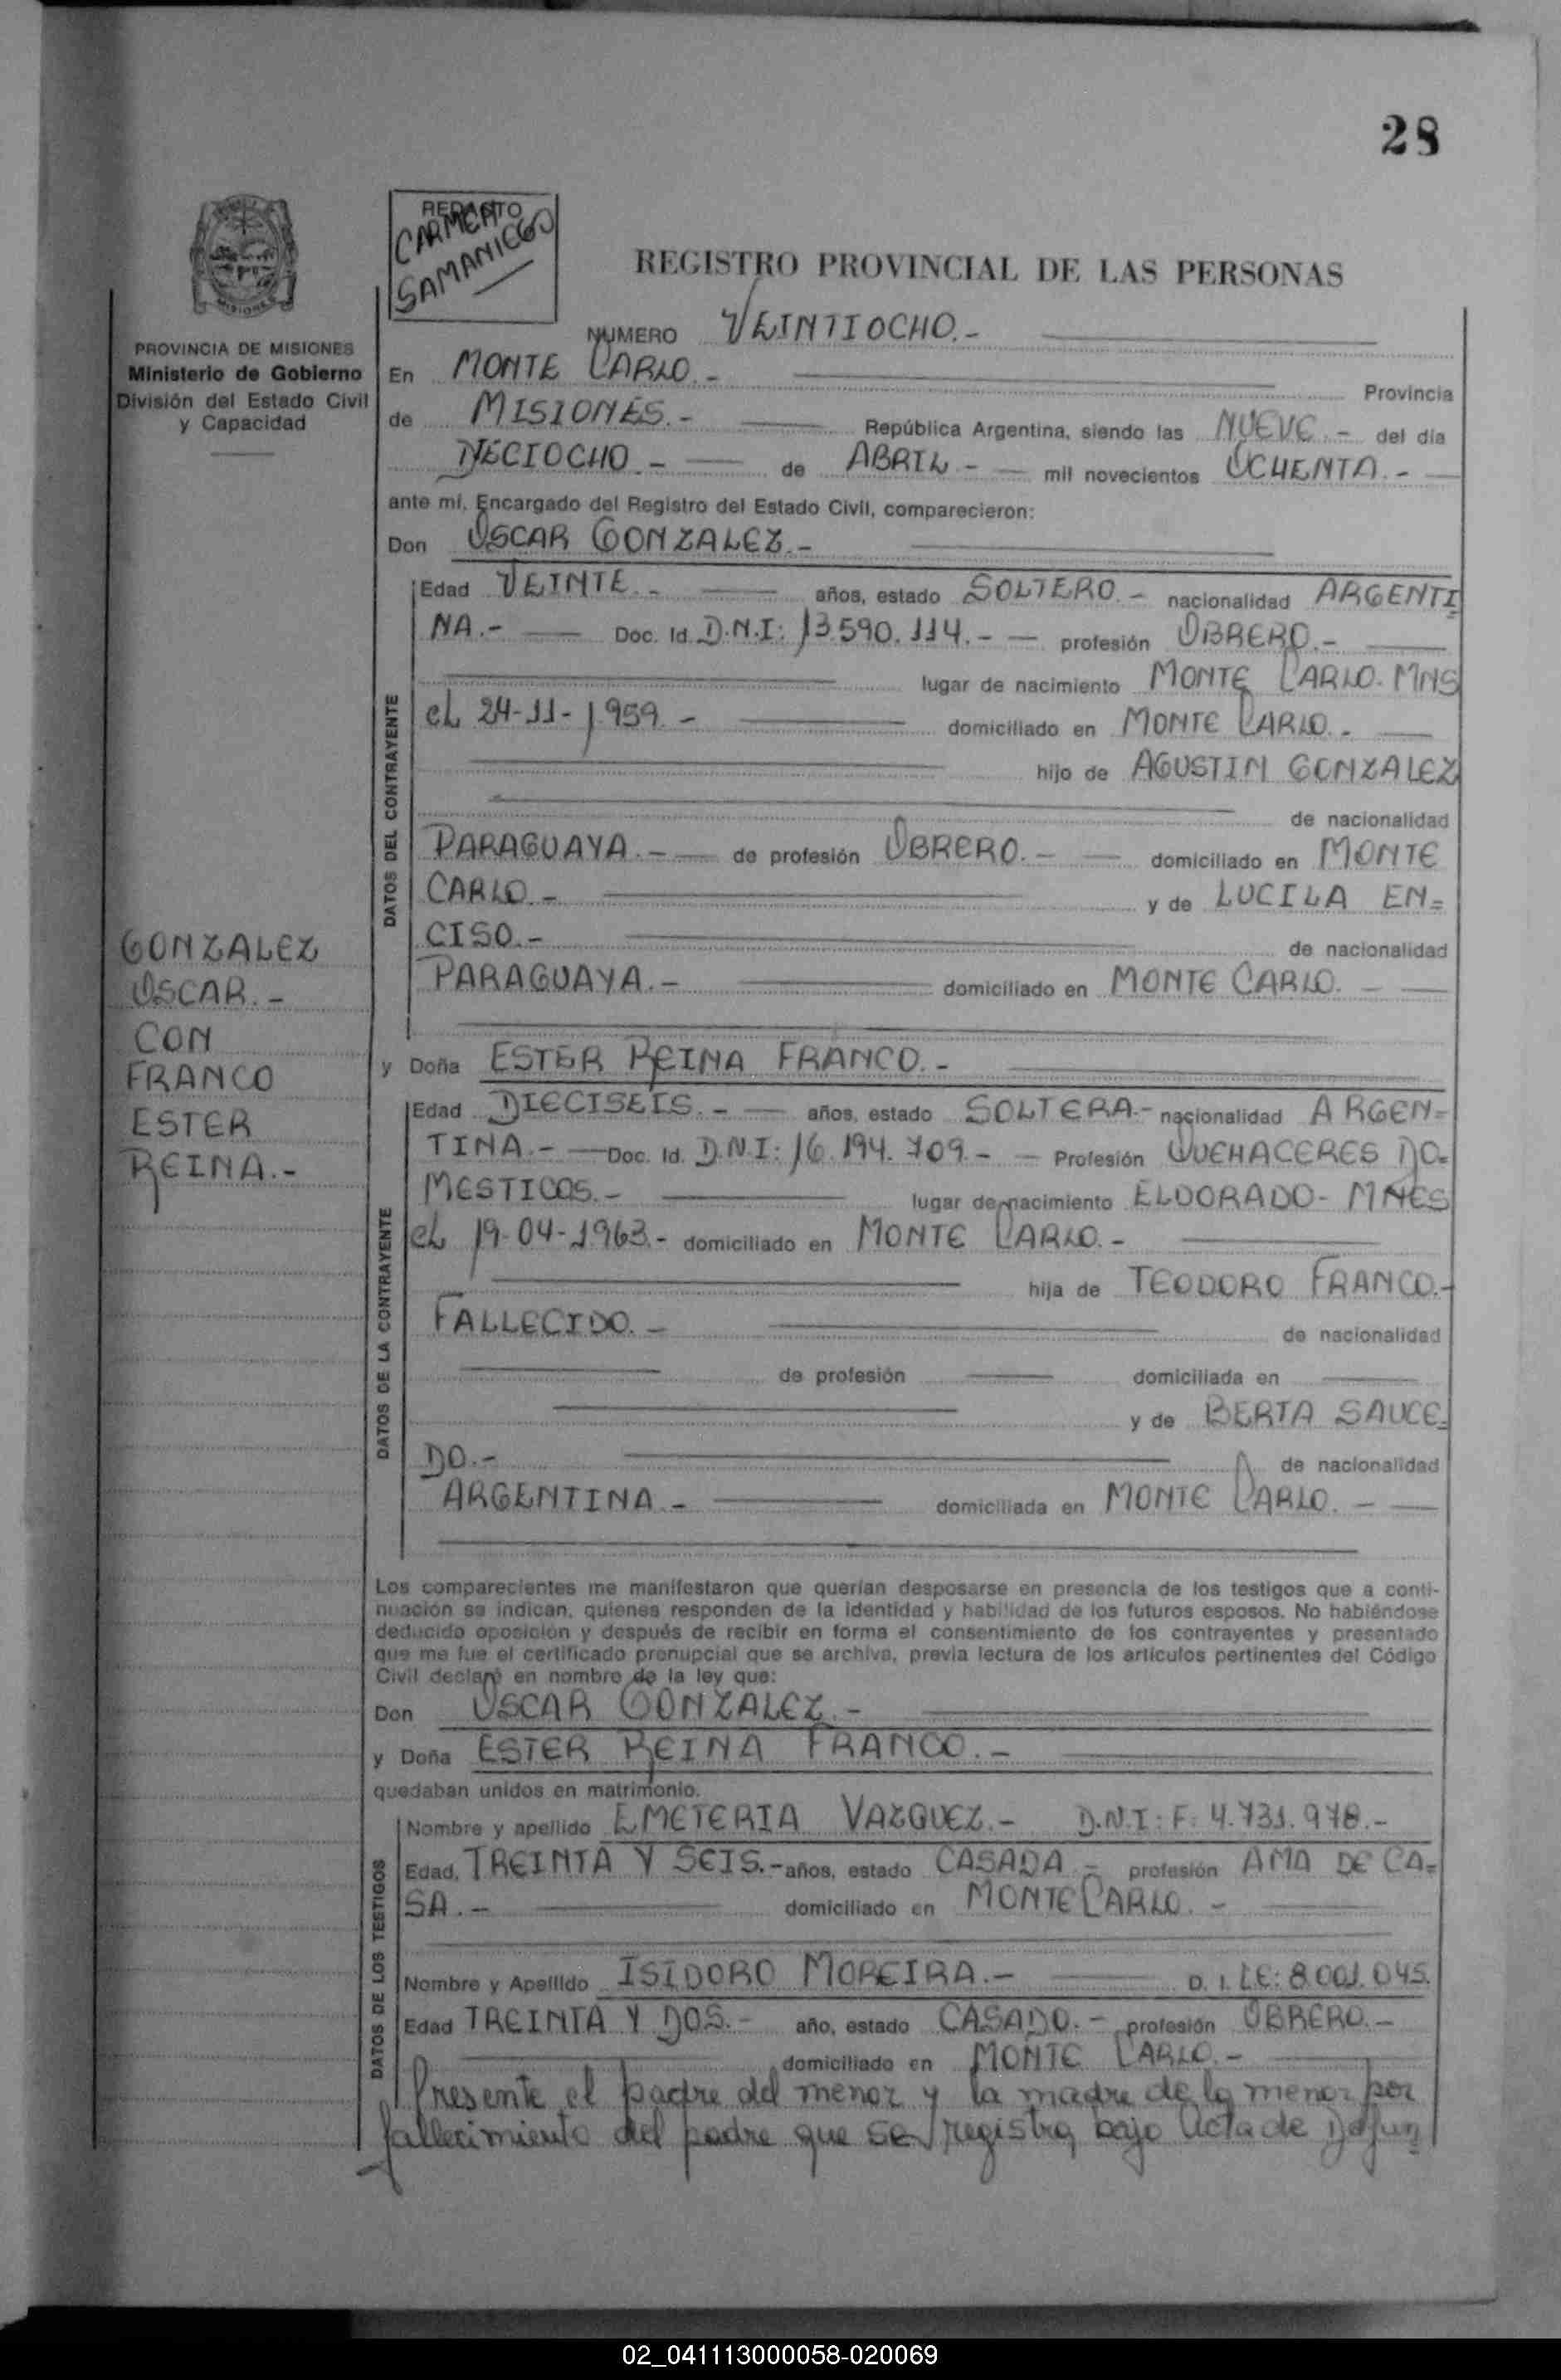 28
REDACTO
CARMEN
SAMANIEGO
REGISTRO PROVINCIAL DE LAS PERSONAS
PROVINCIA DE MISIONES
Ministerio de Gobierno
División del Estado Civil
y Capacidad
NUMERO VEINTIOCHO.-
En MONTE CARLO.- Provincia
de MISIONES.- República Argentina, siendo las NUEVE.- del día
DIECIOCHO.- de ABRIL.- mil novecientos OCHENTA.-
ante mí, Encargado del Registro del Estado Civil, comparecieron:
Don OSCAR GONZALEZ.-
DATOS DEL CONTRAYENTE
Edad VEINTE.- años, estado SOLTERO.- nacionalidad ARGENTI
NA.- Doc. Id. D.N.I: 13.590.114.- profesión OBRERO.-
lugar de nacimiento MONTE CARLO. MNS
el 24-11-1959.- domiciliado en MONTE CARLO.-
hijo de AGUSTIN GONZALEZ
de nacionalidad
PARAGUAYA.- de profesión OBRERO.- domiciliado en MONTE
CARLO.- y de LUCILA EN=
CISO.- de nacionalidad
PARAGUAYA.- domiciliado en MONTE CARLO.-
GONZALEZ
OSCAR.-
CON
FRANCO
ESTER
REINA.-
y Doña ESTER REINA FRANCO.-
DATOS DE LA CONTRAYENTE
Edad DIECISEIS.- años, estado SOLTERA.- nacionalidad ARGEN=
TINA.- Doc. Id. D.N.I: 16.194.709.- Profesión QUEHACERES DO=
MESTICOS.- lugar de nacimiento ELDORADO- MNES
el 19-04-1963.- domiciliado en MONTE CARLO.-
hija de TEODORO FRANCO.-
FALLECIDO.- de nacionalidad
de profesión domiciliada en
y de BERTA SAUCE=
DO.- de nacionalidad
ARGENTINA.- domiciliada en MONTE CARLO.-
Los comparecientes me manifestaron que querían desposarse en presencia de los testigos que a conti-
nuación se indican, quienes responden de la identidad y habilidad de los futuros esposos. No habiéndose
deducido oposición y después de recibir en forma el consentimiento de los contrayentes y presentado
que me fue el certificado prenupcial que se archiva, previa lectura de los artículos pertinentes del Código
Civil declaré en nombre de la ley que:
Don OSCAR GONZALEZ.-
y Doña ESTER REINA FRANCO.-
quedaban unidos en matrimonio.
DATOS DE LOS TESTIGOS
Nombre y apellido EMETERIA VAZQUEZ.- D.N.I: F. 4.731.978.-
Edad, TREINTA Y SEIS.- años, estado CASADA.- profesión AMA DE CA=
SA.- domiciliado en MONTE CARLO.-
Nombre y Apellido ISIDORO MOREIRA.- D. I. LE: 8.001.045.
Edad TREINTA Y DOS.- año, estado CASADO.- profesión OBRERO.-
domiciliado en MONTE CARLO.-
Presente el padre del menor y la madre de la menor por
fallecimiento del padre que se registra bajo Acta de Defun
02_041113000058-020069